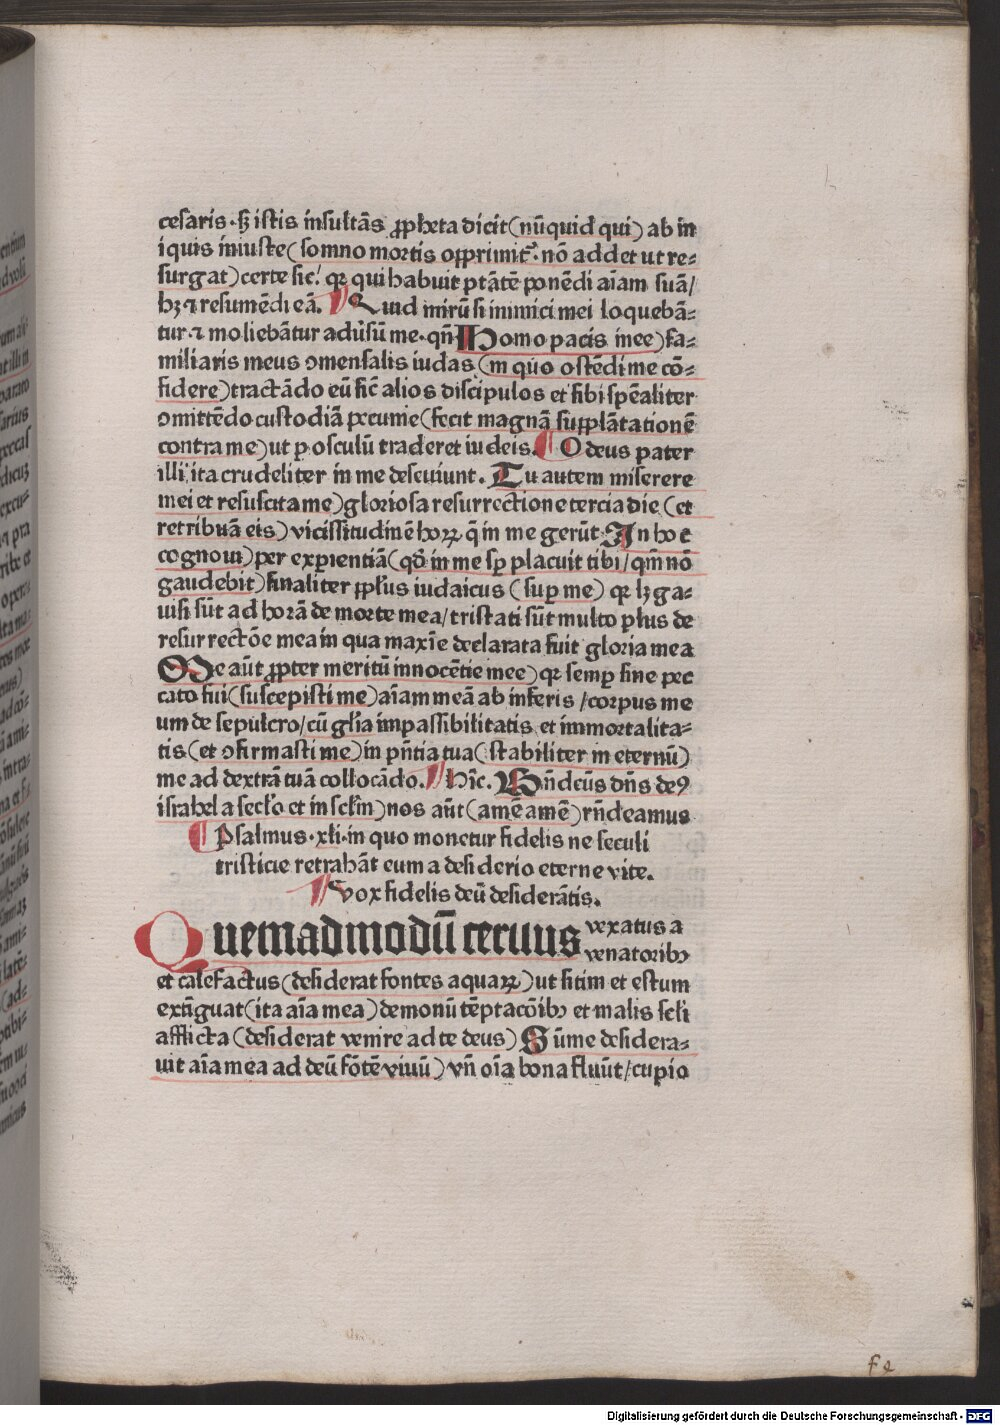 cesaris·sꝫ istis insultās ꝓpheta dicit(nūquid qui) ab in
iquis iniuste(somno mortis opprimit᷑·nō addet ut re-
surgat)certe sic! qꝛ qui habuit ptātē ponēdi aīam suā/
hꝫ ⁊ resumēdi eā. Quid mirū si inimici mei loquebā-
tur·⁊ moliebātur adūsū me·qn̄ Homo pacis mee)fa-
miliaris meus ꝯmensalis iudas(in quo ostēdi me cō-
fidere)tractādo eū sic̄ alios discipulos et sibi spēaliter
ꝯmittēdo custodiā pecunie(fecit magnā supplātationē
contra me)ut ꝑ osculū traderet iudeis. O deus pater
illi ita crudeliter in me deseviunt. Tu autem miserere
mei et resuscita me)gloriosa resurrectione tercia die(et
retribuā eis)vicissitudinē hoꝝ q̄ in me gerūt·In hoc
cognoui)per exꝑientiā(qd̄ in me sꝑ placuit tibi/qm̄ nō
gaudebit)finaliter ppl̄us iudaicus(suꝑ me) qꝛ lꝫ ga-
uisi sūt ad horā de morte mea/tristati sūt multo plus de
resurrectōe mea in qua maxīe declarata fuit gloria mea
Me aūt ꝓpter meritū innocētie mee)qꝛ semꝑ sine pec
cato fui(suscepisti me)aīam meā ab inferis/corpus me
um de sepulcro/cū gl̄ia impassibilitatis et immortalita-
tis(et ꝯfirmasti me)in pn̄tia tua(stabiliter in eternū)
me ad dextrā tuā collocādo. hīc. Bn̄dc̄us dn̄s deꝰ
israhel a sec̄lo et in sc̄lm)nos aūt(amē amē)rn̄deamus
Psalmus·xli·in quo monetur fidelis ne seculi
tristicie retrahāt eum a desiderio eterne vite.
vox fidelis deū desiderātis.
Quemadmodū ceruus vexatus a
venatoribꝫ
et calefactus(desiderat fontes aquaꝝ)ut sitim et estum
extīguat(ita aīa mea)demonū tēptacōibꝫ et malis sc̄li
afflicta(desiderat venire ad te deus)Sūme desidera-
uit aīa mea ad deū fōtē viuū)vn̄ oīa bona fluūt/cupio
Digitalisierung gefördert durch die Deutsche Forschungsgemeinschaft - DFG